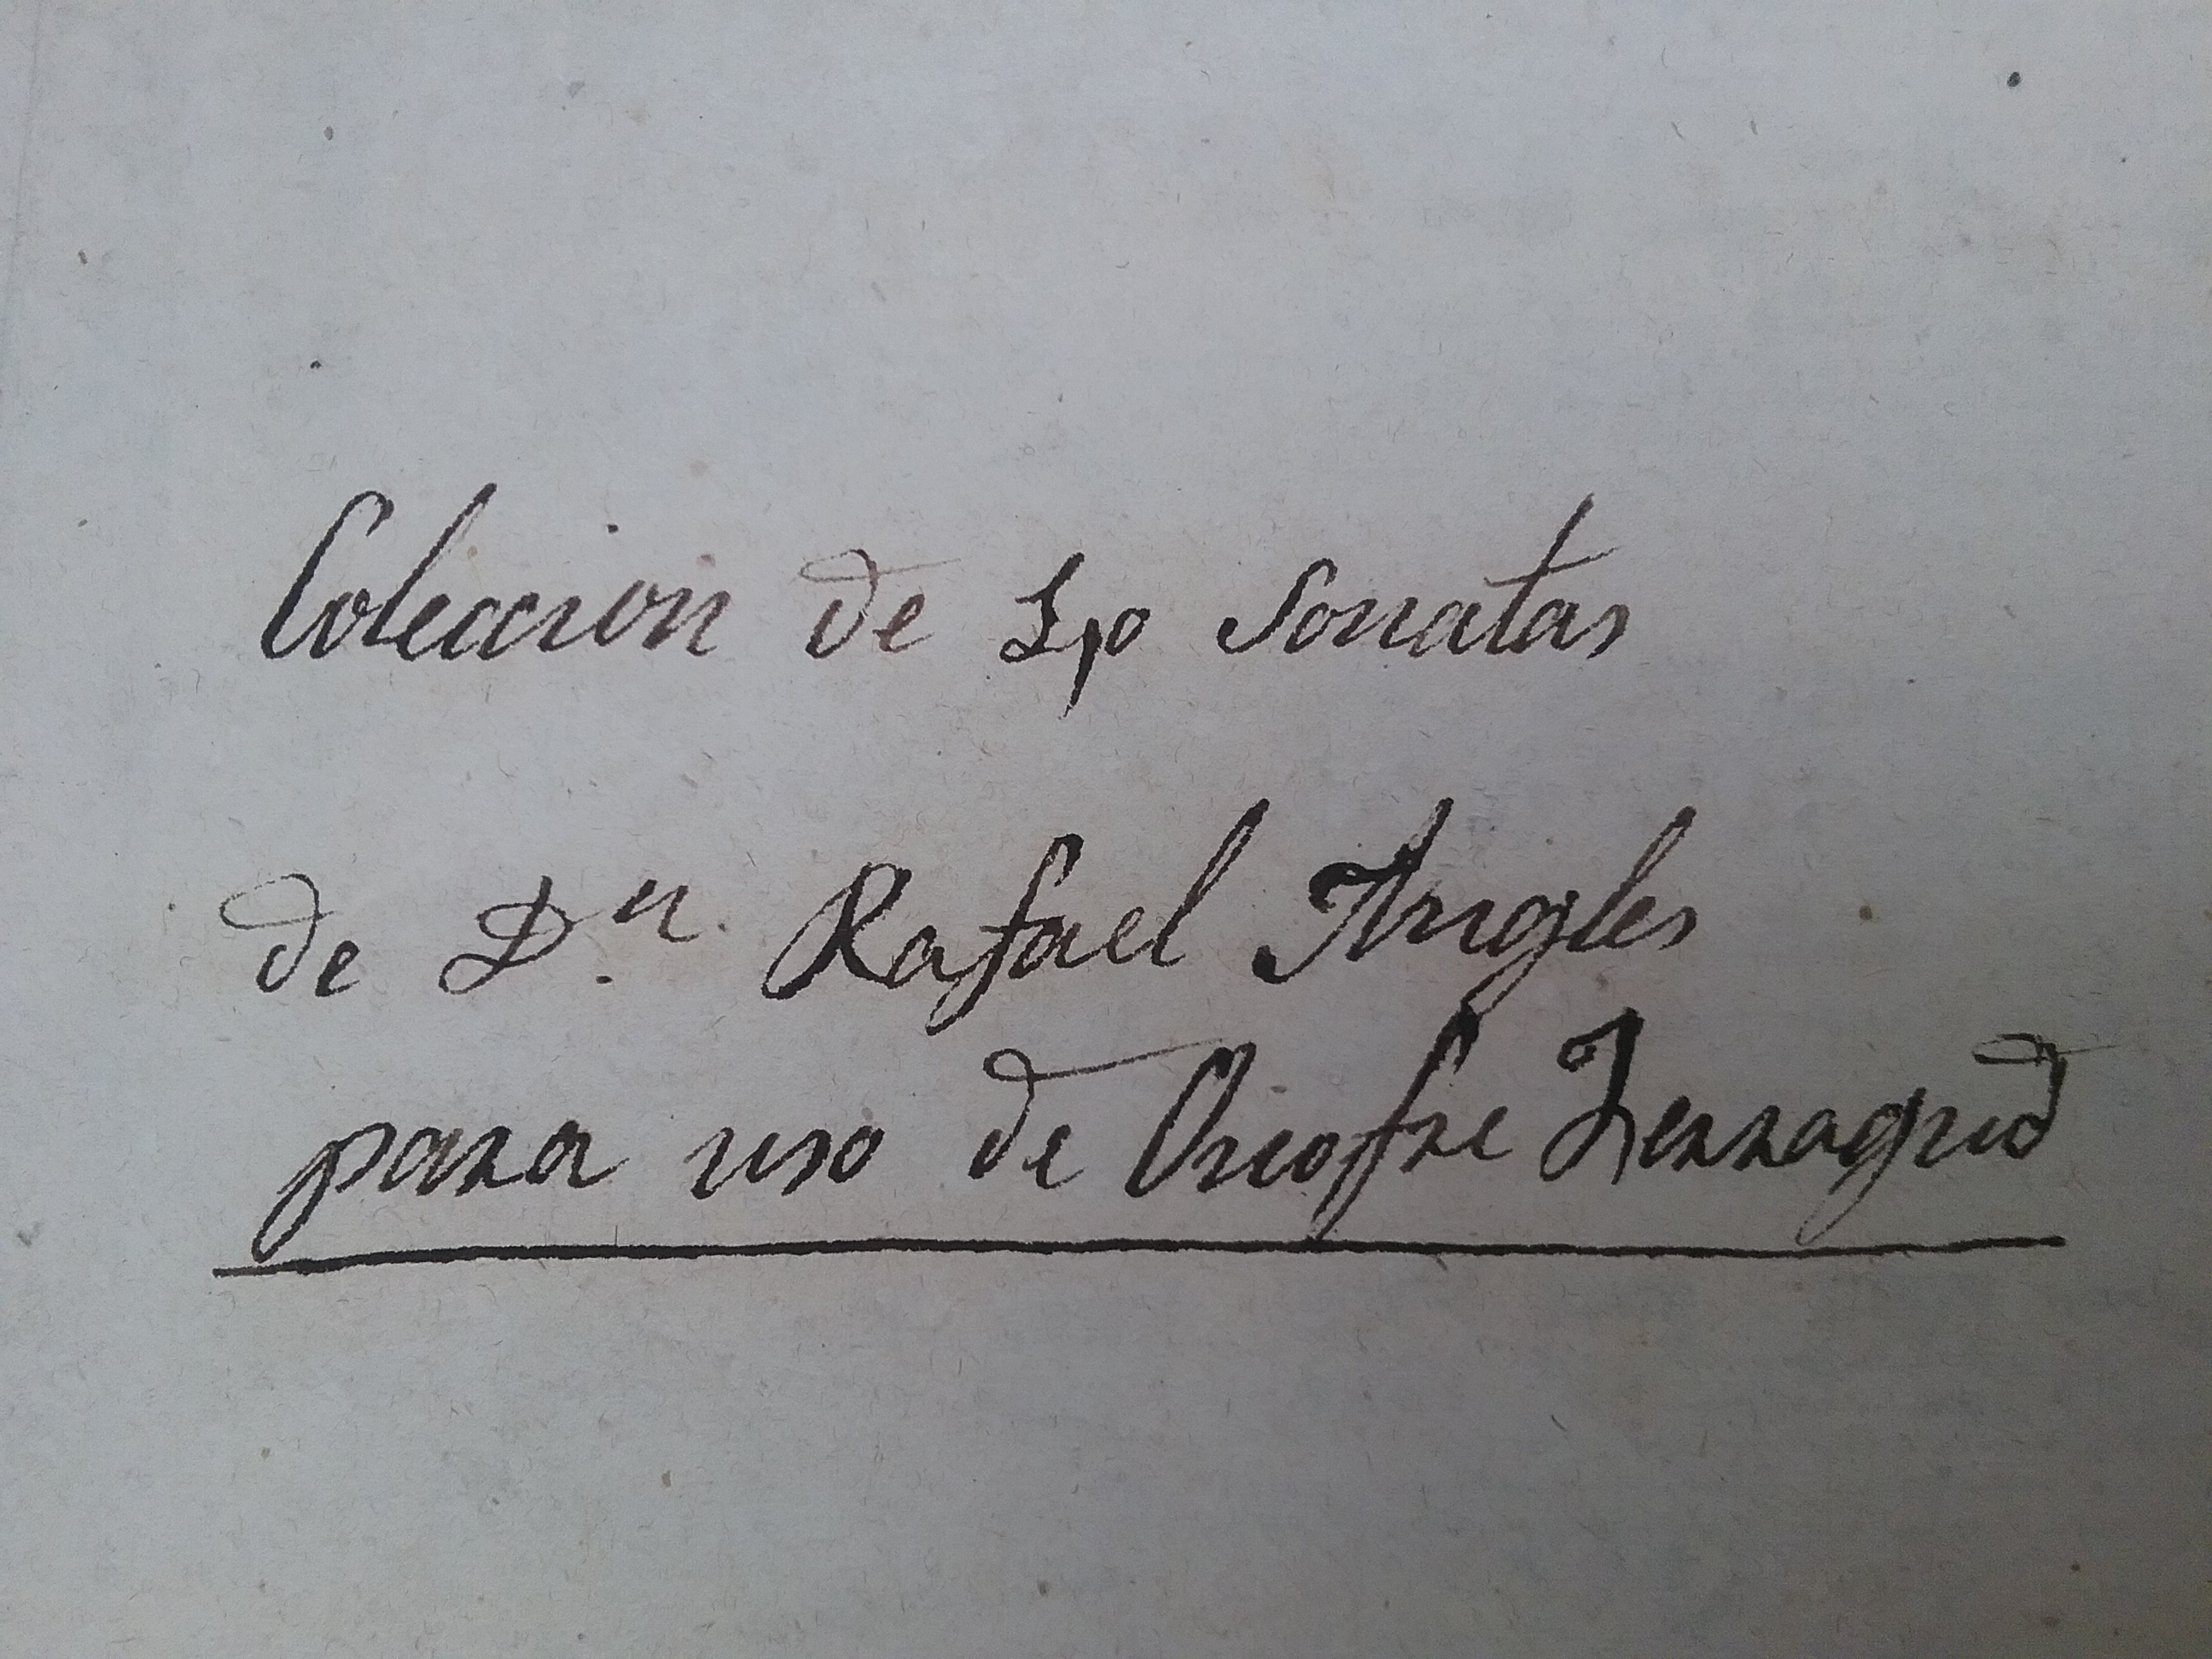 Coleccion de Sonatas
de D.n Rafael Angles
para uso de Onofre Ferragud